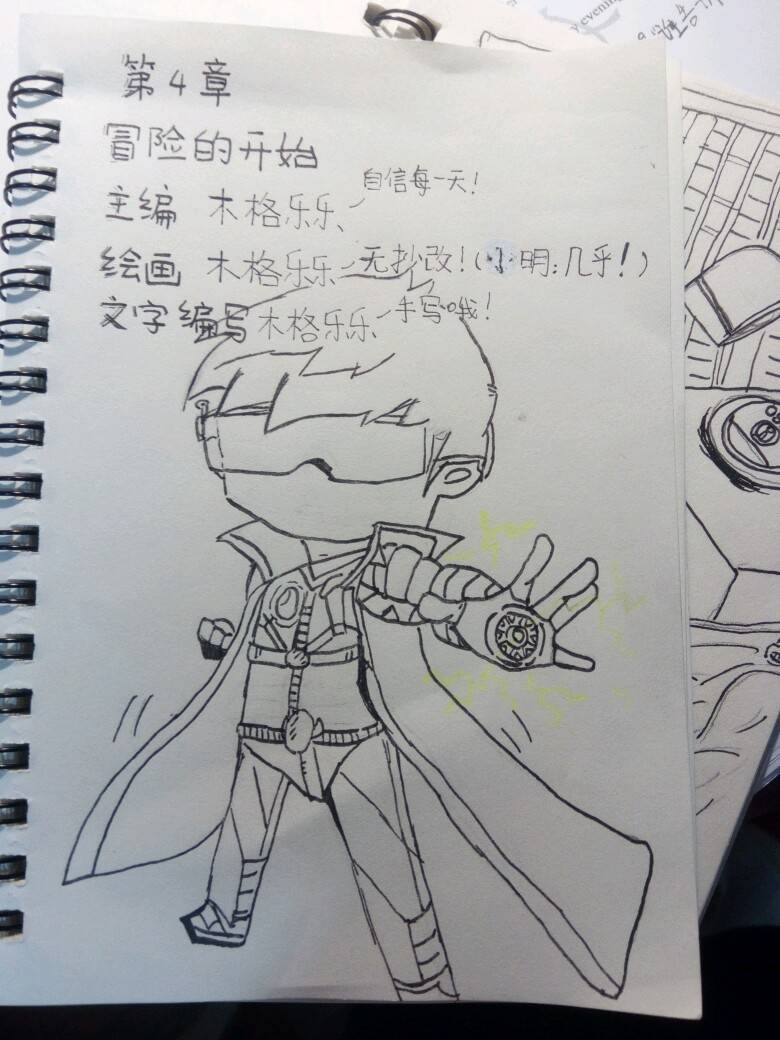 第4章
冒险的开始
主编 木格乐乐 自信每一天!
绘画 木格乐乐 无抄改!(小明:几乎!)
文字编写 木格乐乐 手写哦!
evening